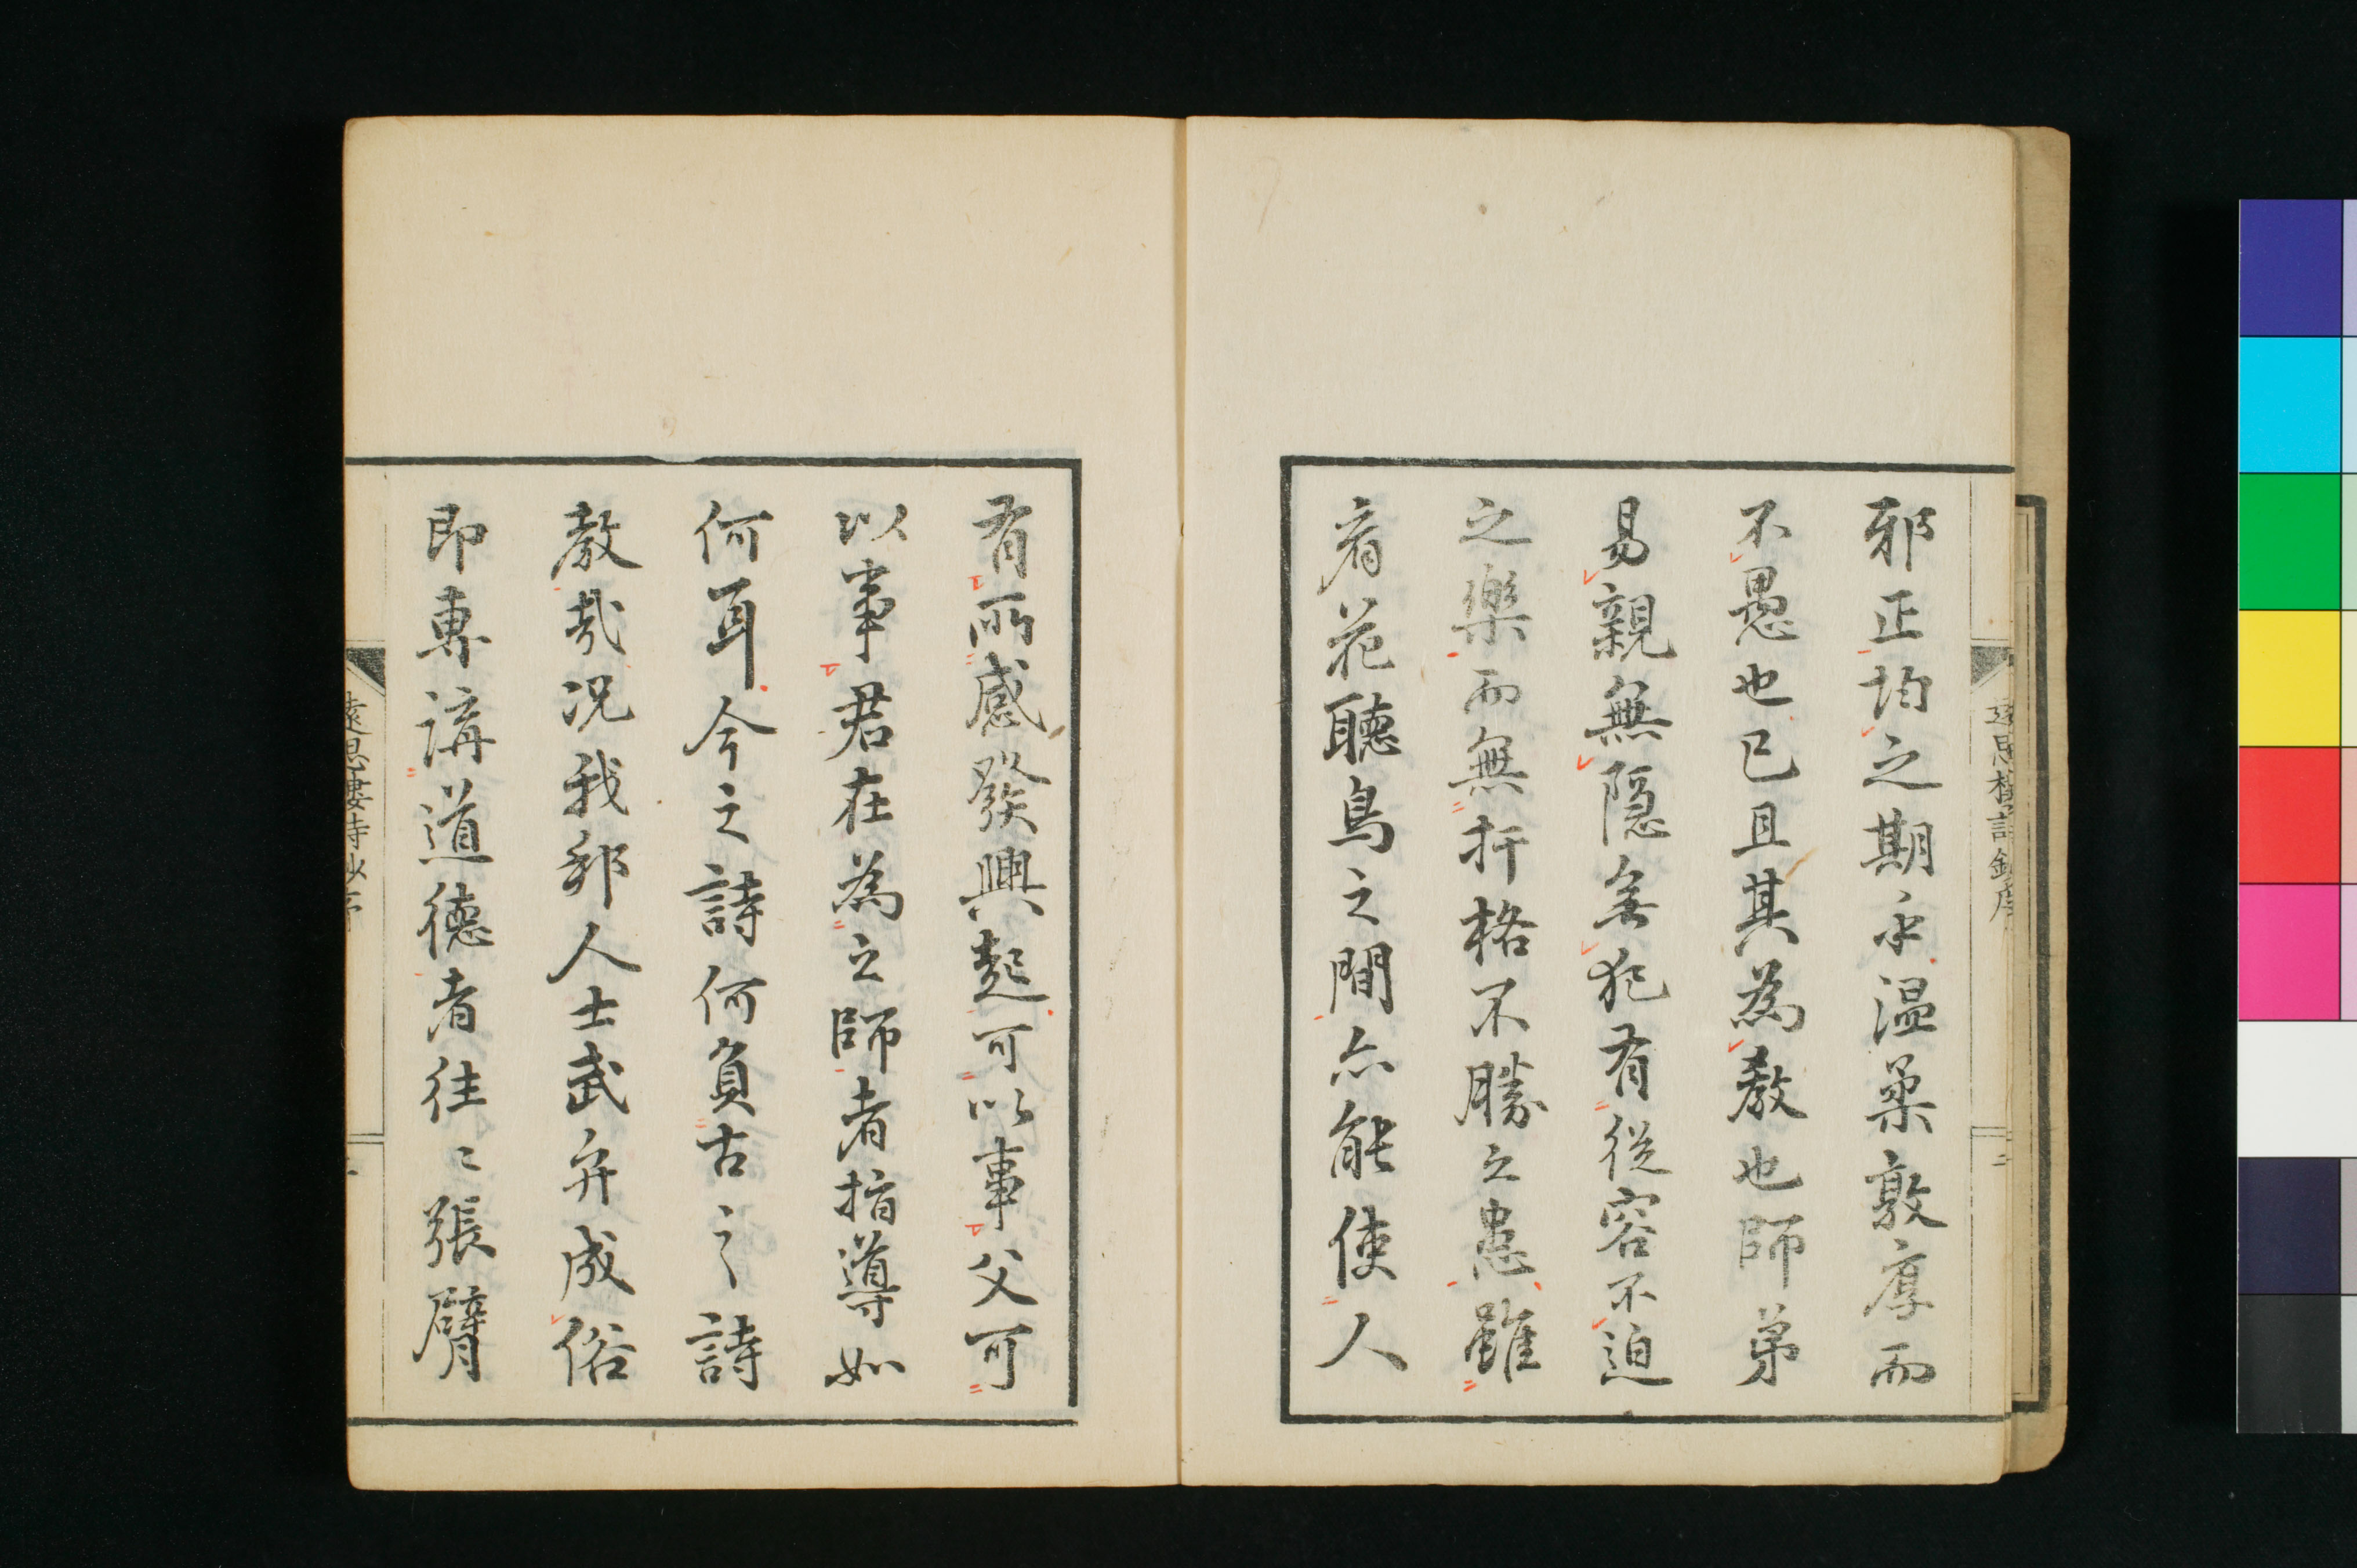 邪正均之期永温柔敦厚而
不愚也已且其為教也師弟
易親無隠無犯有從容不迫
之樂而無扞格不勝之患雖
看花聽鳥之間亦能使人
有所感發興起可以事父可
以事君在為之師者指導如
何耳今之詩何負古之詩
教哉況我邦人士武弁成俗
即専講道徳者往〻張臂
遠思樓詩鈔序
二
遠思樓詩鈔序